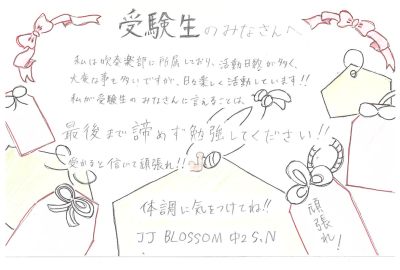 受験生のみなさんへ
私は吹奏楽部に所属しており、活動日数が多く、
大変な事も多いですが、日々楽しく活動しています!!
私が受験生のみなさんに言えることは、
最後まで諦めず勉強してください!!
受かると信じて頑張れ!!
体調に気をつけてね!!
JJ BLOSSOM 中2 S,N
頑張れ!